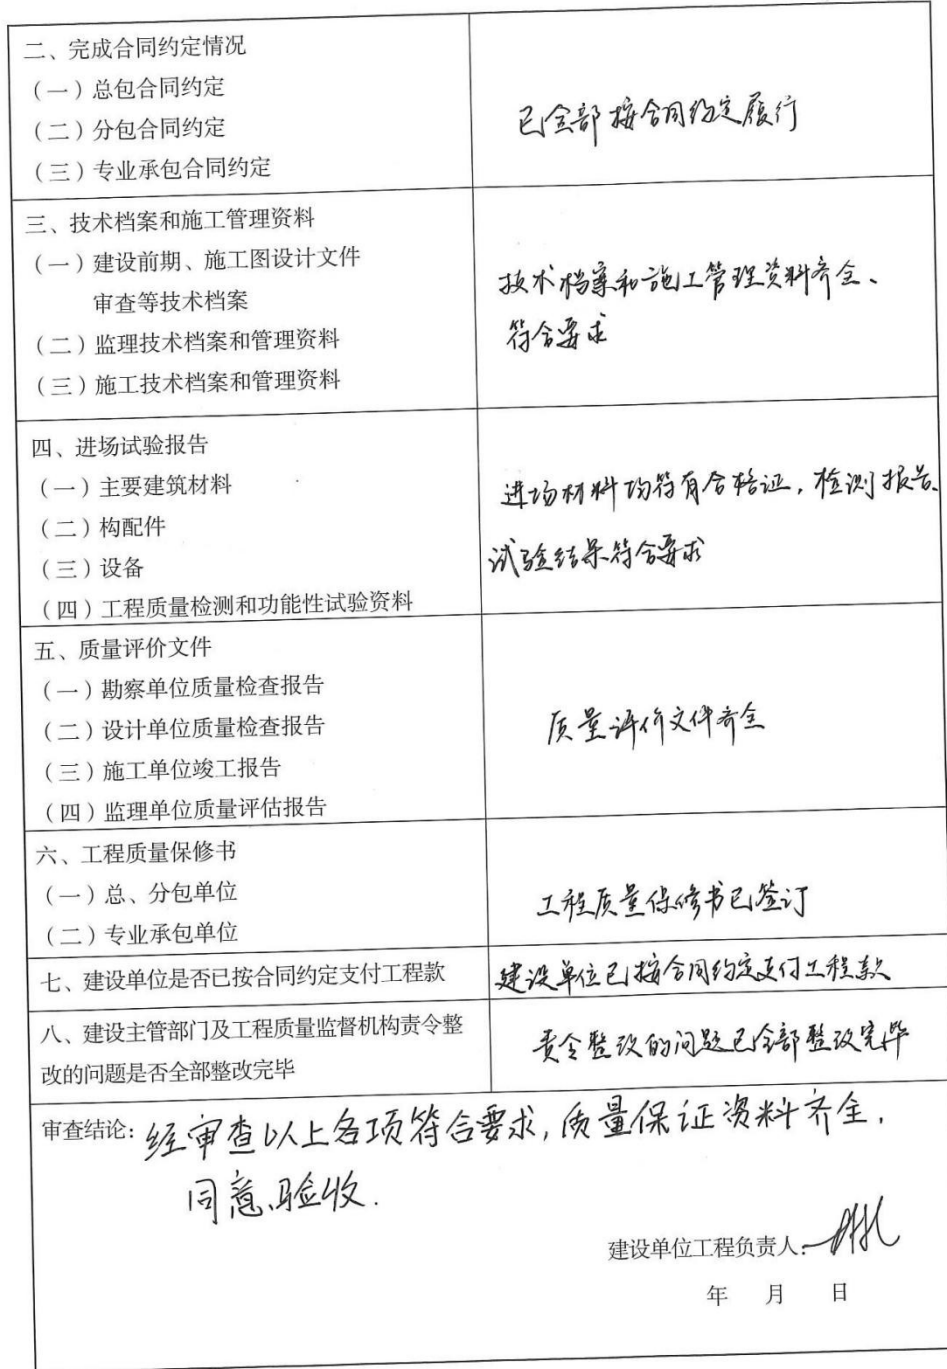 二、完成合同约定情况
（一）总包合同约定
（二）分包合同约定
（三）专业承包合同约定
已全部按合同约定履行
三、技术档案和施工管理资料
（一）建设前期、施工图设计文件
审查等技术档案
（二）监理技术档案和管理资料
（三）施工技术档案和管理资料
技术档案和施工管理资料齐全、
符合要求
四、进场试验报告
（一）主要建筑材料
（二）构配件
（三）设备
（四）工程质量检测和功能性试验资料
进场材料均符有合格证，检测报告、
试验结果符合要求
五、质量评价文件
（一）勘察单位质量检查报告
（二）设计单位质量检查报告
（三）施工单位竣工报告
（四）监理单位质量评估报告
质量评价文件齐全
六、工程质量保修书
（一）总、分包单位
（二）专业承包单位
工程质量保修书已签订
七、建设单位是否已按合同约定支付工程款
建设单位已按合同约定支付工程款
八、建设主管部门及工程质量监督机构责令整
改的问题是否全部整改完毕
责令整改的问题已全部整改完毕
审查结论：经审查以上各项符合要求，质量保证资料齐全，
同意验收.
建设单位工程负责人：
年 月 日